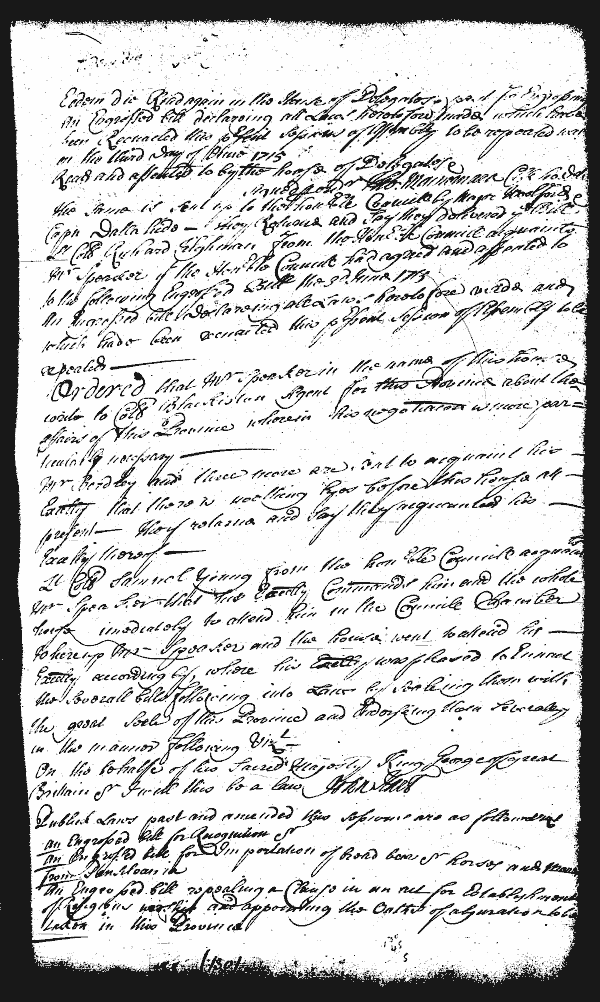 Eodem die Read again in the House of Delegates & past for Engrossing
An Engrossed bill declaring all Laws heretofore made which have
been Reenacted this psent Sessions of Assembly to be repealed was
on the third day of June 1715
Read and assented to by the house of Delegates
signed p ordr Cl: h: d:
The same is sent up to the honble Councill by Major
Capn Dalahide — they Returne and Say they delivered y Bill.
Lt Coll Richard Tilghman from the Honble Council acquaints
Mr Speaker yt the Honble Council had agreed and assented to
to the following Engrossed Bill the 3d June 1715
An Engrossed bill declareing all Laws heretofore made and
which have been reenacted this psent Session of Assembly to be
repealed
Ordered that Mr Speaker in the name of this house
write to Coll Blackiston Agent for this Province about the
affairs of this Province wherein his negotiation is more par=
ticularly necessary
Mr Bordley and three more are sent to acquaint his
Exellcy that there is nothing lyes before this house att
present — They returne and Say they acquainted his
Exellcy thereof
Lt Coll Samuel Young from the honble Councill acquaints
Mr Speaker that his Exellcy Commands him and the whole
house imediately to attend him in the Councill Chamber
Whereup Mr Speaker and the house went to attend his
Exellcy accordingly, where his Exellcy was pleased to Enact
the Severall bills following into Laws by Sealing them with
the great Seale of this Province and Endorsing them Severally
in the manner following Vizt
On the behalfe of his Sacred Majesty King George of great
Britain &c I will this be a law John Hart
Publick Laws past and amended this Sessions are as followeth
an Engrossed bill for Recognition &c
an Engrossed bill for Importation of bread beer &c horses and
from Pensilvania
An Engrossed bill repealing a Clause in an act for Establishment
of Religious worship and appointing the Oaths of abjuration to be
taken in this Province